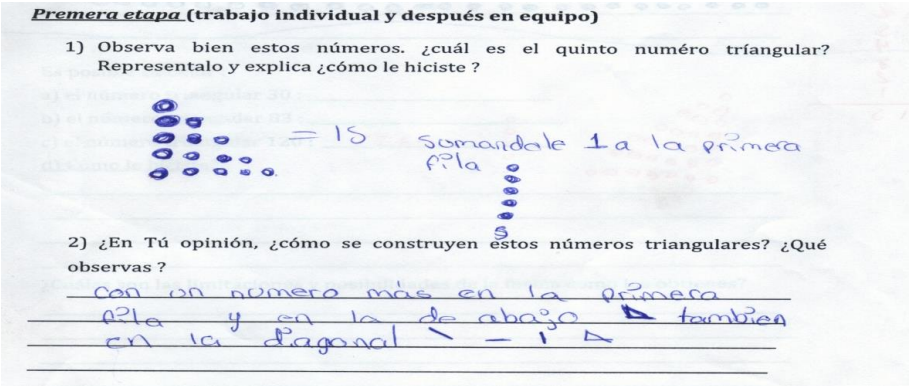 Premera etapa (trabajo individual y después en equipo)
1) Observa bien estos números. ¿cuál es el quinto numéro tríangular?
Representalo y explica ¿cómo le hiciste ?
= 15 somandole 1 a la primera
fila
5
2) ¿En Tú opinión, ¿cómo se construyen estos números triangulares? ¿Qué
observas ?
con un numero más en la primera
fila y en la de abajo tambien
en la diagonal